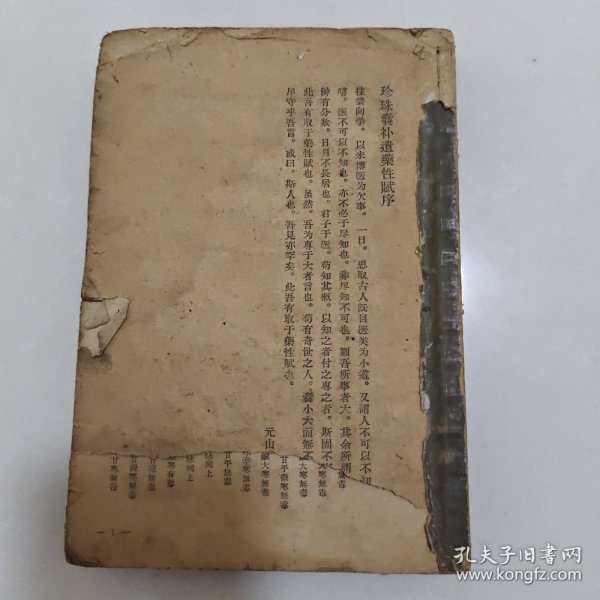 珍珠囊补遗藥性賦序
往嘗向學。以未博医为欠事。一日。思取古人旣目医类为小道。又謂人不可以不知
嘻。医不可以不知也。亦不必于尽知也。非尽知不可也。顧吾所事者大。其余所謂
神有分数。日月不長居也。君子于医。苟知其概。以知之者付之專之者。斯固不
此吾有取于藥性賦也。虽然。吾为專于大者言也。苟有奇世之人。囊小大而無不
尽守乎吾言。或曰。斯人也。吾見亦罕矣。此吾有取于藥性賦也。
元山
大寒無毒
甘平無毒
味同上
寒有毒
甘寒無毒
— 1 —
孔夫子旧书网
www.kongfz.com